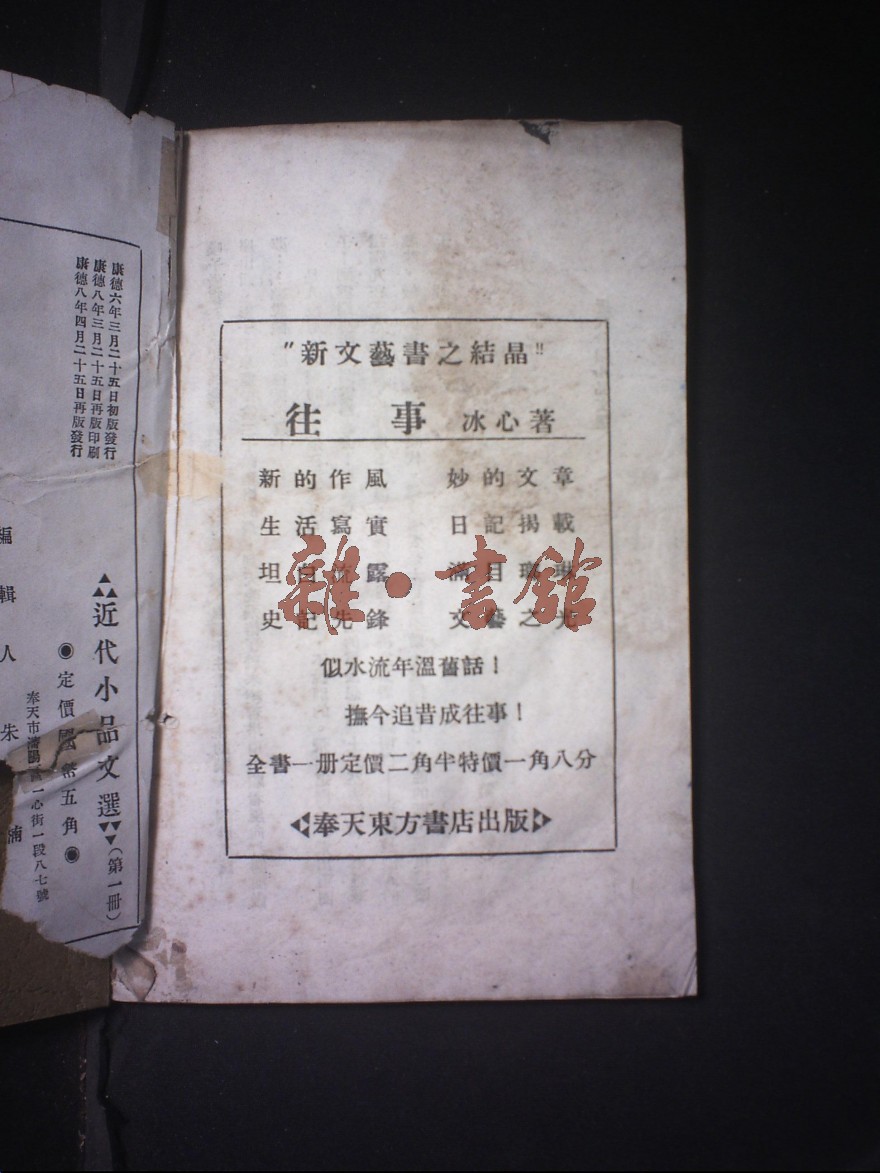 "新文藝書之結晶"
往事 冰心著
新的作風 妙的文章
生活寫實 日記揭載
坦白流露 滿目琳瑯
史記先鋒 文藝之光
似水流年溫舊話！
撫今追昔成往事！
全書一册定價二角半特價一角八分
奉天東方書店出版
雜·書館
康德六年三月二十五日初版發行
康德八年三月二十五日再版印刷
康德八年四月二十五日再版發行
近代小品文選（第一冊）
◉定價國幣五角◉
奉天市瀋陽區一心街一段八七號
編輯人朱